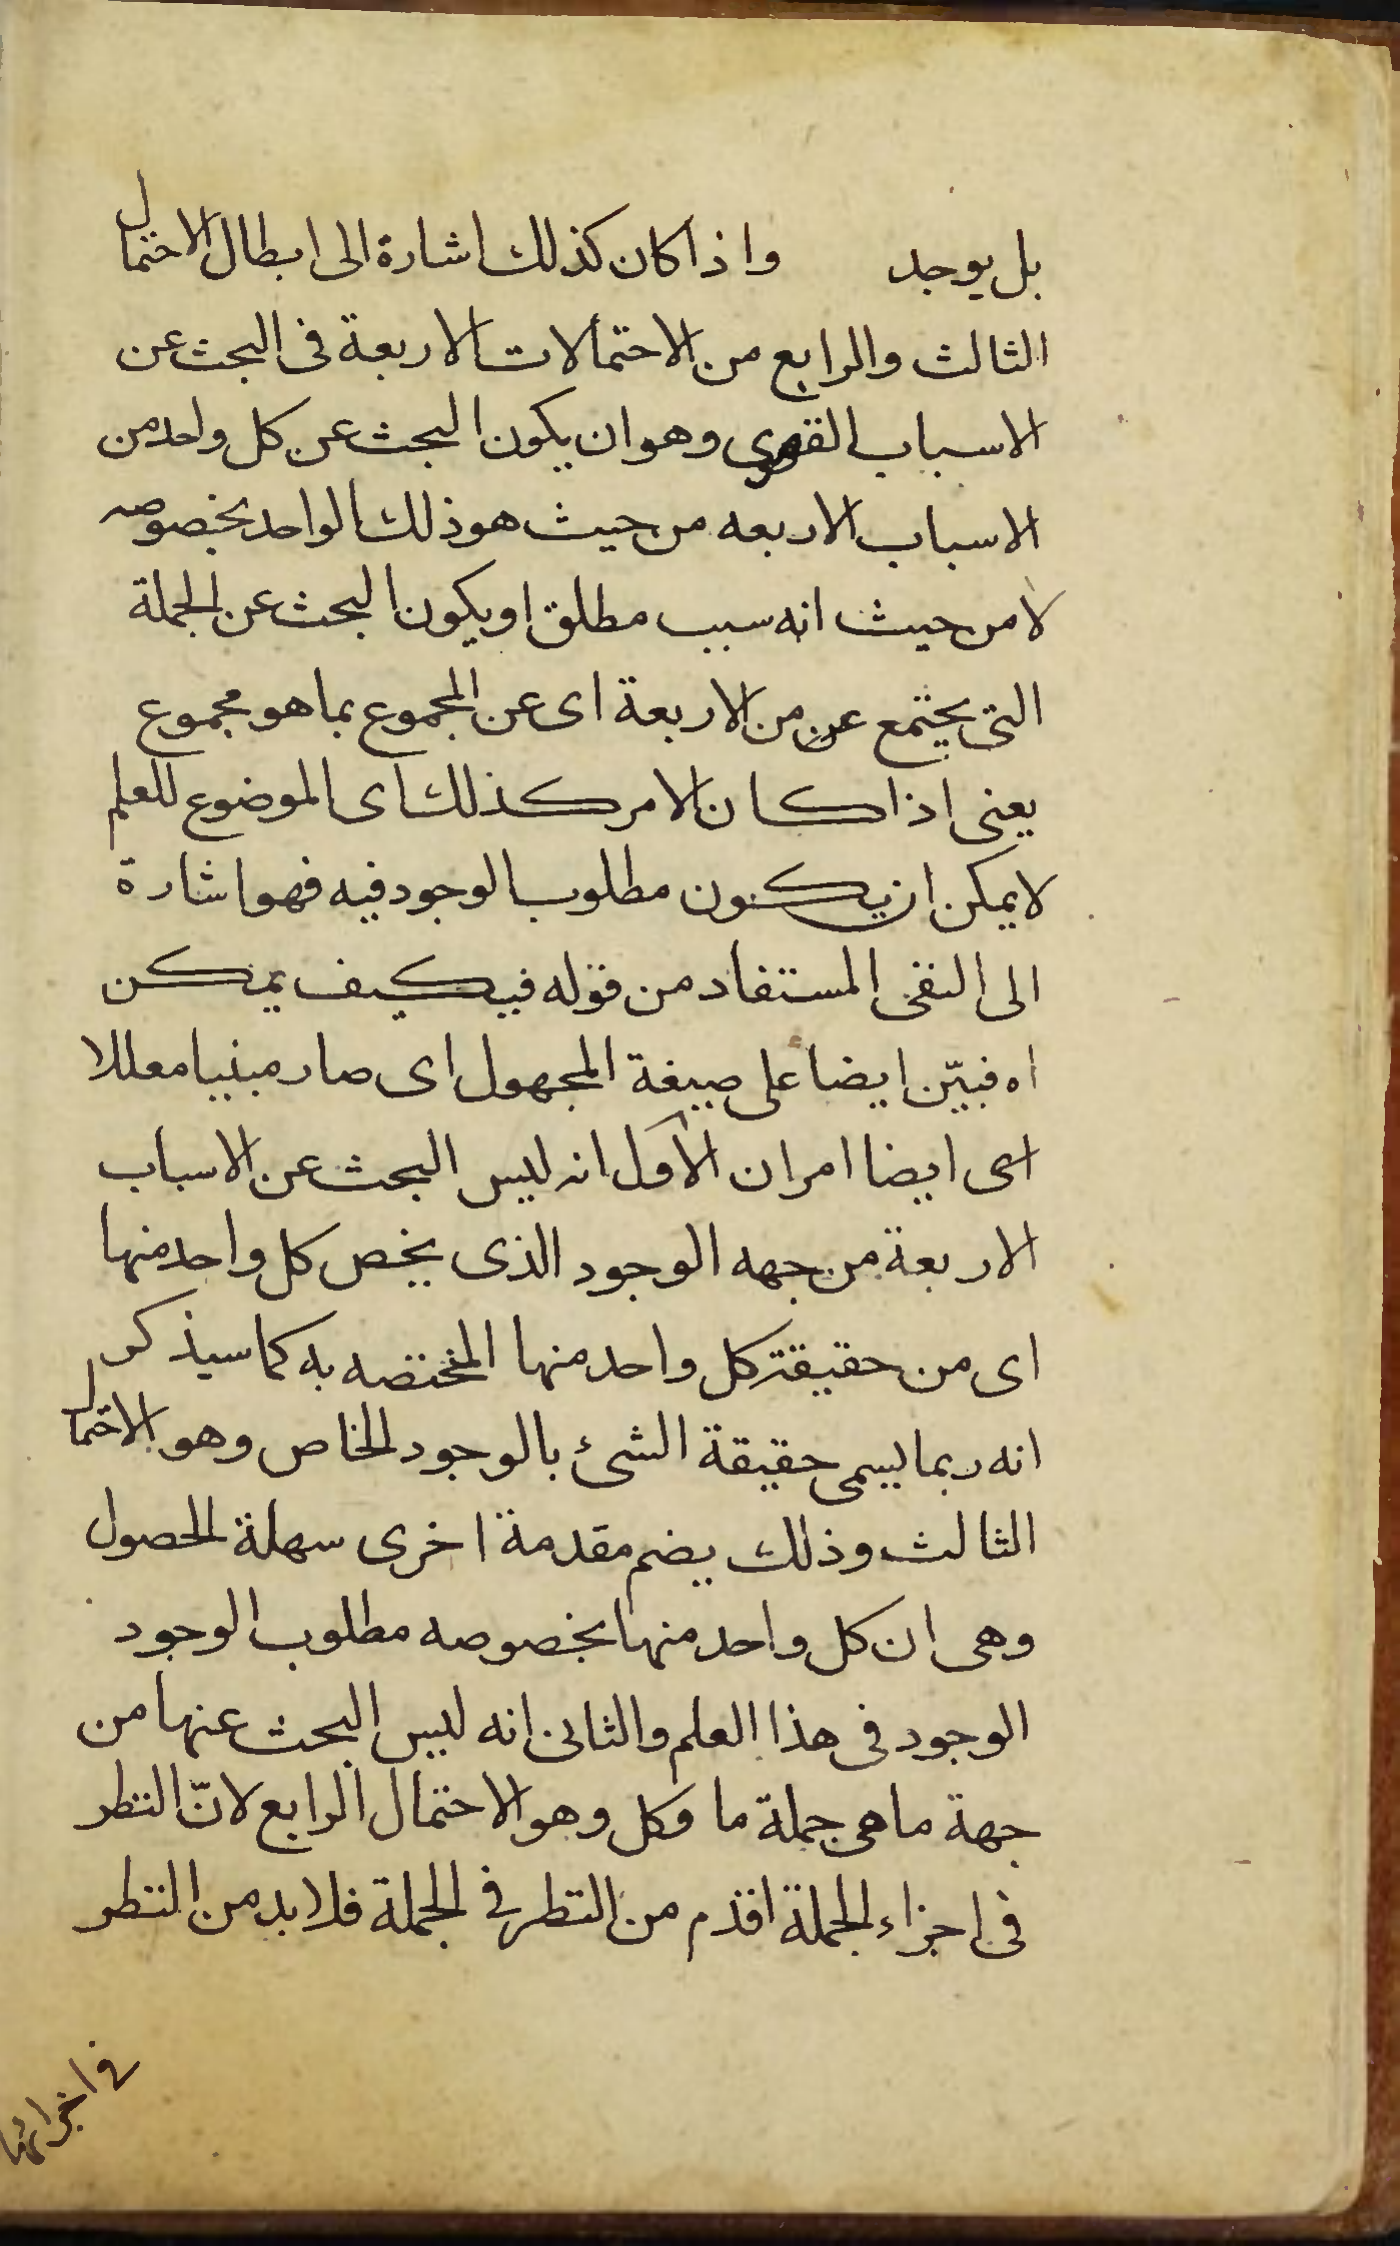 بل يوجد واذا كان كذلك اشارة الى ابطال الاحتمال
الثالث والرابع من الاحتمالات الاربعة فى البحث عن
الاسباب القصوى وهو ان يكون البحث عن كل واحد من
الاسباب الاربعه من حيث هو ذلك الواحد بخصوصه
لا من حيث انه سبب مطلق او يكون البحث عن الجملة
التى يجتمع عن من الاربعة اى عن المجموع بما هو مجموع
يعنى اذا كان الامر كذلك اى الموضوع للعلم
لا يمكن ان يكون مطلوب الوجود فيه فهو اشارة
الى النفى المستفاد من قوله فكيف يمكن
اه فبيّن ايضا على صيغة المجهول اى صار مبنيا معللا
اى ايضا امران الاول انه ليس البحث عن الاسباب
الاربعة من جهه الوجود الذى يخص كل واحد منها
اى من حقيقة كل واحد منها المختصه به كما سيذكر
انه ربما يسمى حقيقة الشئ بالوجود الخاص وهو الاحتمال
الثالث وذلك بضم مقدمة اخرى سهلة الحصول
وهى ان كل واحد منها بخصوصه مطلوب الوجود
الوجود فى هذا العلم والثانى انه ليس البحث عنها من
جهة ما هى جملة ما وكل وهو الاحتمال الرابع لانّ النظر
فى اجزاء الجملة اقدم من النظر فى الجملة فلا بد من النظر
فى اجزائها